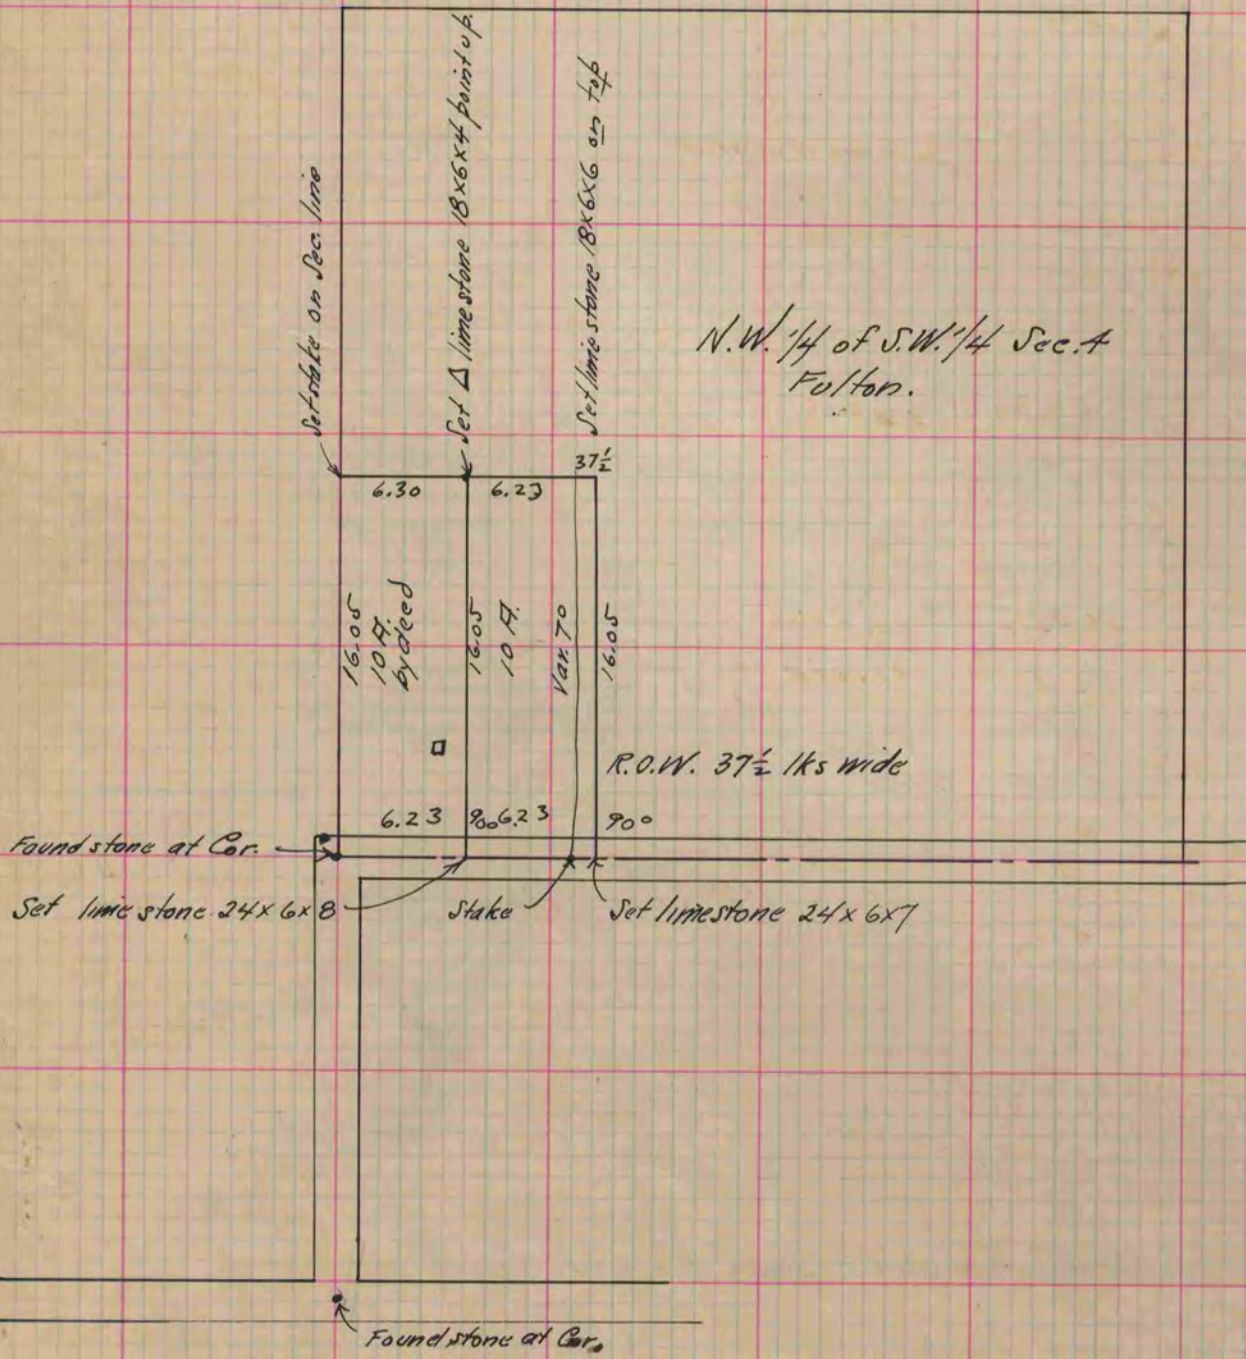 Set stake on Sec. line
Set Δ limestone 18x6x4 point up.
Set limestone 18x6x6 on top
N.W. 1/4 of S.W. 1/4 Sec. 4
Fulton.
37½
6.30
6.23
16.05
10 A.
by deed
16.05
10 A.
Var. 7°
16.05
R.O.W. 37½ lks wide
6.23
90°
6.23
90°
Found stone at Cor.
Set lime stone 24x6x8
Stake
Set limestone 24x6x7
Found stone at Cor.